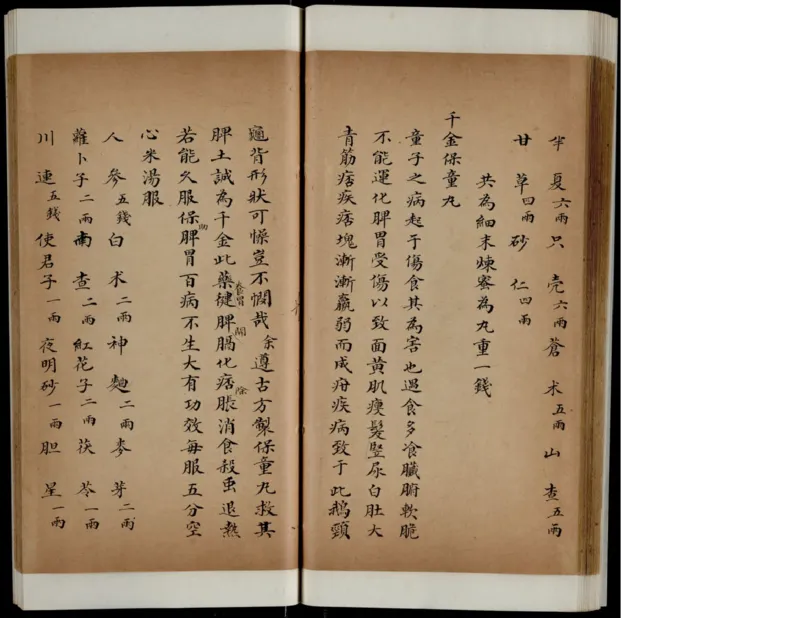 半夏六兩只壳六兩蒼术五兩山查五兩
甘草四兩砂仁四兩
共為細末煉蜜為丸重一錢
千金保童丸
童子之病起于傷食其為害也過食多飡臟腑軟脆
不能運化脾胃受傷以致面黄肌瘦髮竪尿白肚大
青筋痞疾痞塊漸漸羸弱而成疳疾病致于此鵝頸
通背形狀可慘豈不憫哉余遵古方製保童丸救其
脾土誠為千金此藥健脾養胃開膈化痞除脹消食殺虫退熱
若能久服保助脾胃百病不生大有功效每服五分空
心米湯服
人參五錢白术二兩神麯二兩麥芽二兩
蘿卜子二兩南查二兩紅花子二兩茯苓一兩
川連五錢使君子一兩夜明砂一兩胆星一兩